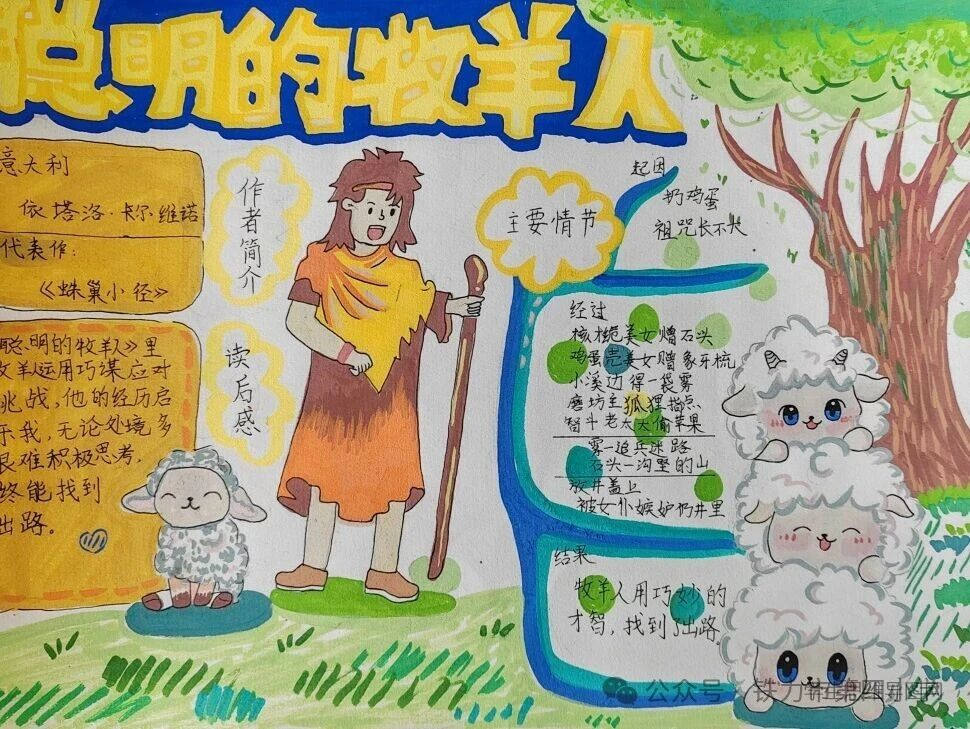 聪明的牧羊人
意大利
依塔洛·卡尔维诺
代表作:
《蛛巢小径》
作者简介
聪明的牧羊人》里
牧羊运用巧谋应对
挑战,他的经历启
示我,无论处境多
艰难积极思考,
终能找到
出路。
读后感
主要情节
起因
扔鸡蛋
祖咒长不大
经过
核桃美女赠石头
鸡蛋壳美女赠象牙梳
小溪边得一袋雾
磨坊主狐狸指点
智斗老太太偷苹果
雾—追兵迷路
石头—沟壑的山
放井盖上
被女仆嫉妒扔井里
结果
牧羊人用巧妙的
才智,找到了出路.
公众号·铁力